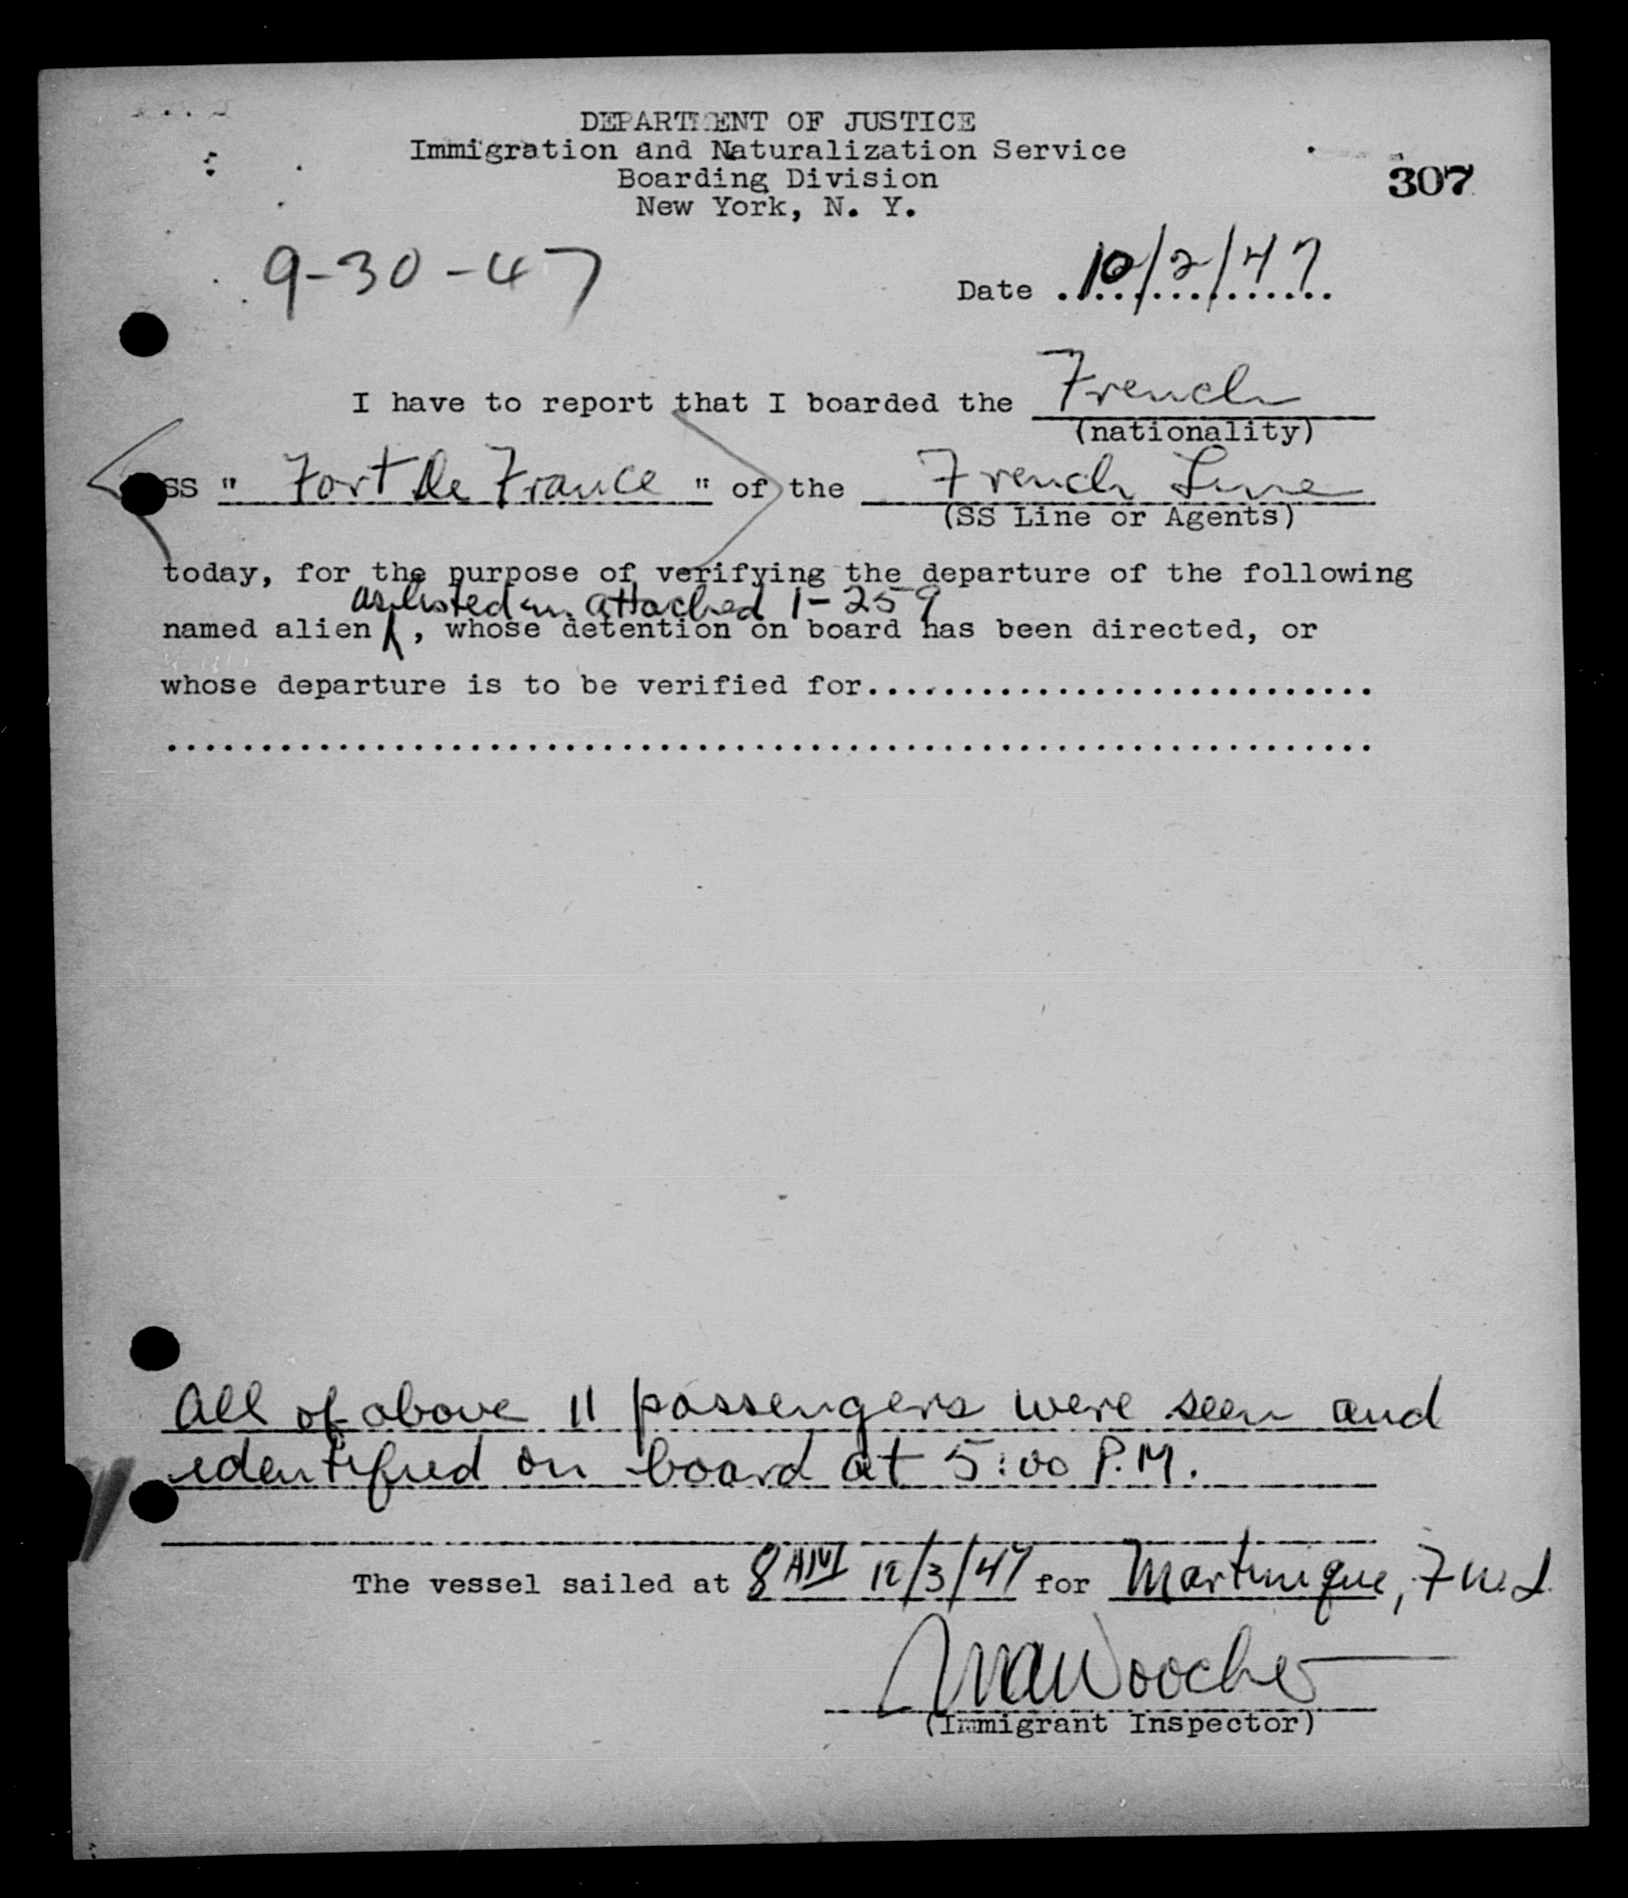 DEPARTMENT OF JUSTICE
Immigration and Naturalization Service
Boarding Division
New York, N. Y.
307
9-30-47
Date 10/2/47
I have to report that I boarded the French
(nationality)
SS " Fort De France " of the French Line
(SS Line or Agents)
today, for the purpose of verifying the departure of the following
as listed on attached I-259
named alien , whose detention on board has been directed, or
whose departure is to be verified for............................
................................................................
All of above 11 passengers were seen and
identified on board at 5:00 P.M.
The vessel sailed at 8 AM 10/3/47 for Martinique, F W I.
(Immigrant Inspector)